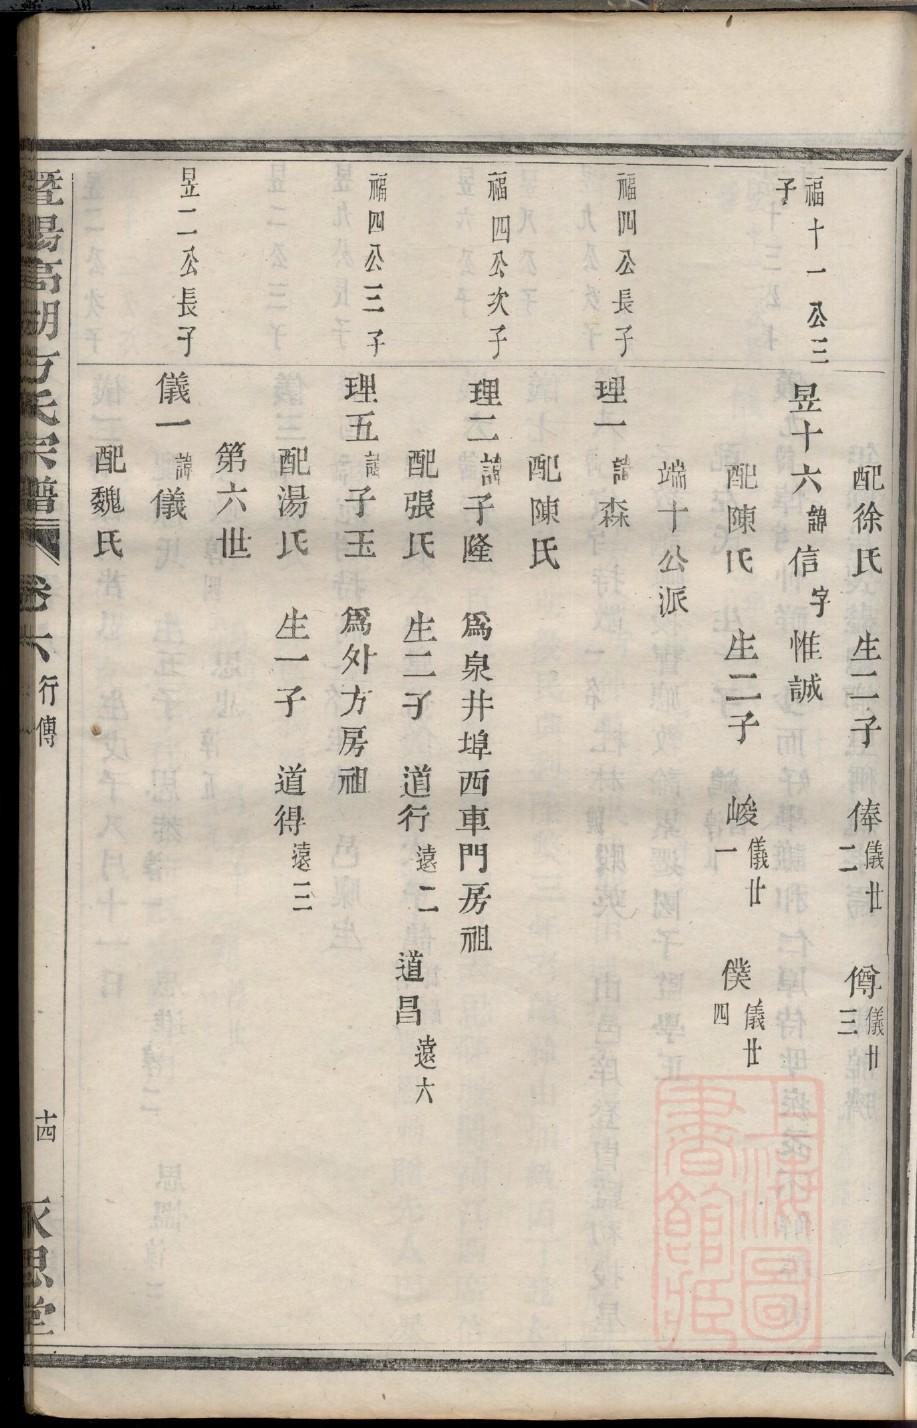 配徐氏 生二子 俸儀廿二 僔儀廿三
福十一公三子
昱十六諱信字惟誠
配陳氏 生二子 峻儀廿一 僕儀廿四
端十公派
福四公長子
理一諱森
配陳氏
福四公次子
理二諱子隆 爲泉井埠西車門房祖
配張氏 生二子 道行遠二 道昌遠六
福四公三子
理五諱子玉 爲外方房祖
配湯氏 生一子 道得遠三
第六世
昱二公長子
儀一諱儀
配魏氏
暨陽高湖方氏宗譜 卷六 行傳 十四 永思堂